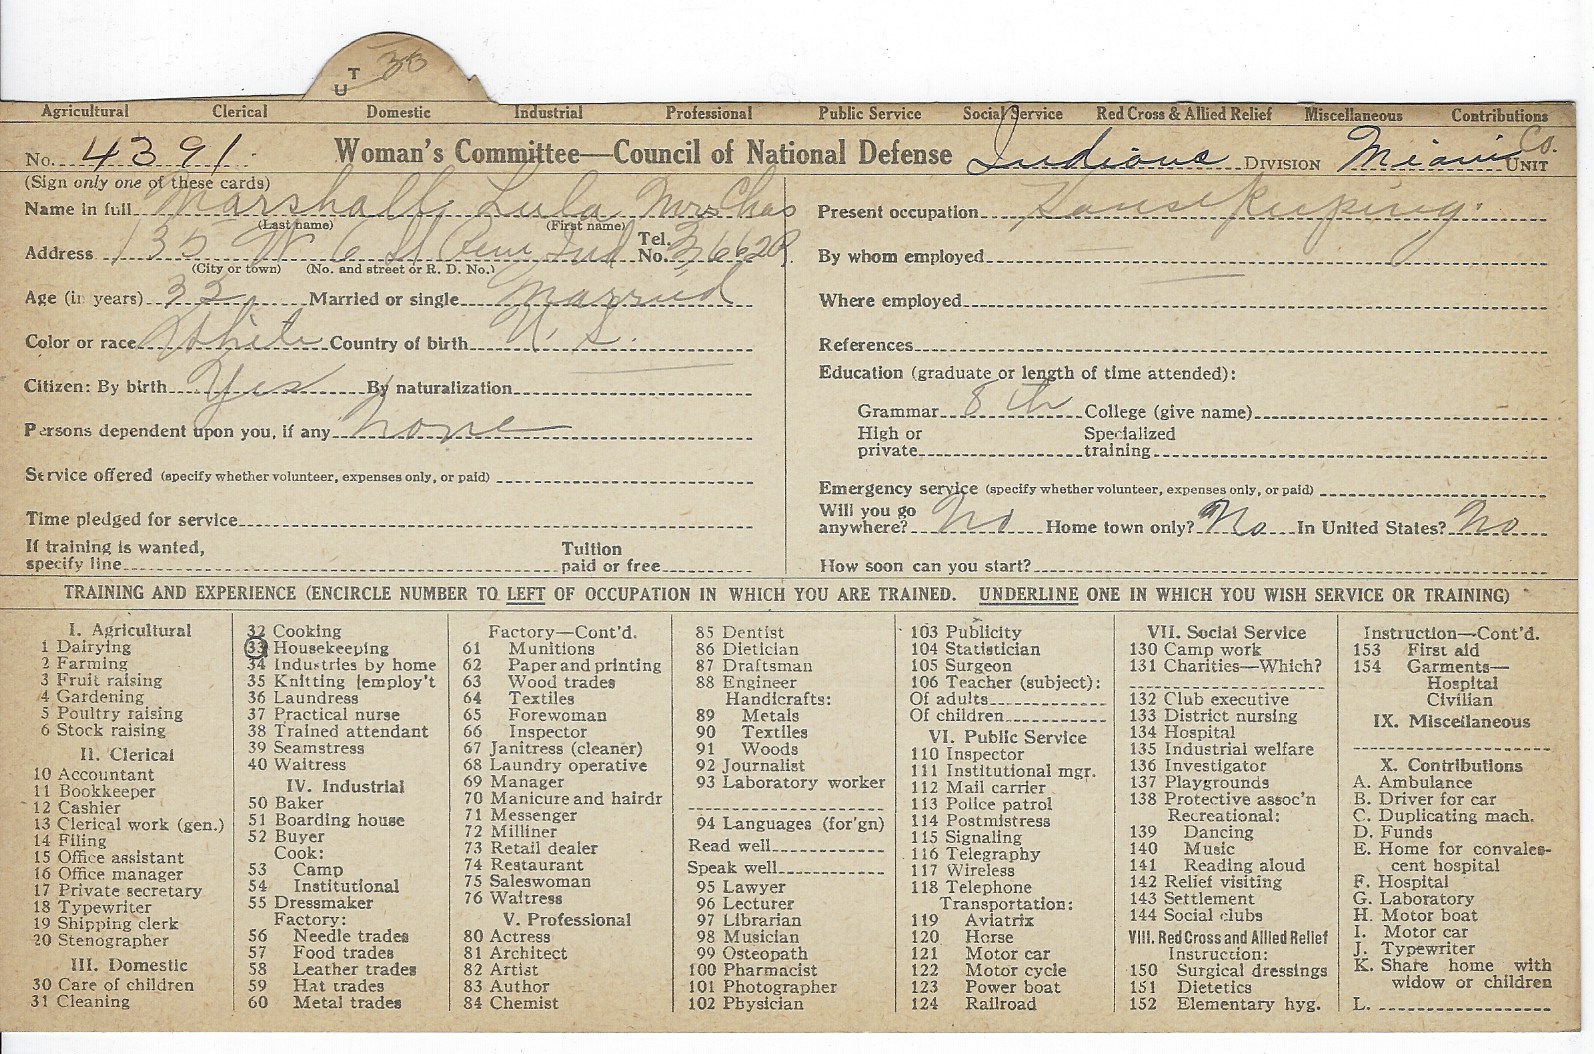 T 33
U
Agricultural Clerical Domestic Industrial Professional Public Service Social Service Red Cross & Allied Relief Miscellaneous Contributions
No. 4391 Woman's Committee—Council of National Defense Indiana DIVISION Miami Co. UNIT
(Sign only one of these cards)
Name in full Marshall Lula Mrs Chas
(Last name) (First name)
Address 135 W 6 St Peru Ind Tel. No.
(City or town) (No. and street or R. D. No.)
Age (in years) 33 Married or single Married
Color or race White Country of birth U. S.
Citizen: By birth Yes By naturalization
Persons dependent upon you, if any None
Service offered (specify whether volunteer, expenses only, or paid)
Time pledged for service
If training is wanted,
specify line Tuition paid or free
Present occupation Housekeeping.
By whom employed
Where employed
References
Education (graduate or length of time attended):
Grammar 8th College (give name)
High or private Specialized training
Emergency service (specify whether volunteer, expenses only, or paid)
Will you go
anywhere? No Home town only? No In United States? No
How soon can you start?
TRAINING AND EXPERIENCE (ENCIRCLE NUMBER TO LEFT OF OCCUPATION IN WHICH YOU ARE TRAINED. UNDERLINE ONE IN WHICH YOU WISH SERVICE OR TRAINING)
I. Agricultural
1 Dairying
2 Farming
3 Fruit raising
4 Gardening
5 Poultry raising
6 Stock raising
II. Clerical
10 Accountant
11 Bookkeeper
12 Cashier
13 Clerical work (gen.)
14 Filing
15 Office assistant
16 Office manager
17 Private secretary
18 Typewriter
19 Shipping clerk
20 Stenographer
III. Domestic
30 Care of children
31 Cleaning
32 Cooking
33 Housekeeping
34 Industries by home
35 Knitting [employ't
36 Laundress
37 Practical nurse
38 Trained attendant
39 Seamstress
40 Waitress
IV. Industrial
50 Baker
51 Boarding house
52 Buyer
Cook:
53 Camp
54 Institutional
55 Dressmaker
Factory:
56 Needle trades
57 Food trades
58 Leather trades
59 Hat trades
60 Metal trades
Factory—Cont'd.
61 Munitions
62 Paper and printing
63 Wood trades
64 Textiles
65 Forewoman
66 Inspector
67 Janitress (cleaner)
68 Laundry operative
69 Manager
70 Manicure and hairdr
71 Messenger
72 Milliner
73 Retail dealer
74 Restaurant
75 Saleswoman
76 Waitress
V. Professional
80 Actress
81 Architect
82 Artist
83 Author
84 Chemist
85 Dentist
86 Dietician
87 Draftsman
88 Engineer
Handicrafts:
89 Metals
90 Textiles
91 Woods
92 Journalist
93 Laboratory worker
94 Languages (for'gn)
Read well
Speak well
95 Lawyer
96 Lecturer
97 Librarian
98 Musician
99 Osteopath
100 Pharmacist
101 Photographer
102 Physician
103 Publicity
104 Statistician
105 Surgeon
106 Teacher (subject):
Of adults
Of children
VI. Public Service
110 Inspector
111 Institutional mgr.
112 Mail carrier
113 Police patrol
114 Postmistress
115 Signaling
116 Telegraphy
117 Wireless
118 Telephone
Transportation:
119 Aviatrix
120 Horse
121 Motor car
122 Motor cycle
123 Power boat
124 Railroad
VII. Social Service
130 Camp work
131 Charities—Which?
132 Club executive
133 District nursing
134 Hospital
135 Industrial welfare
136 Investigator
137 Playgrounds
138 Protective assoc'n
Recreational:
139 Dancing
140 Music
141 Reading aloud
142 Relief visiting
143 Settlement
144 Social clubs
VIII. Red Cross and Allied Relief
Instruction:
150 Surgical dressings
151 Dietetics
152 Elementary hyg.
Instruction—Cont'd.
153 First aid
154 Garments—
Hospital
Civilian
IX. Miscellaneous
X. Contributions
A. Ambulance
B. Driver for car
C. Duplicating mach.
D. Funds
E. Home for convales-
cent hospital
F. Hospital
G. Laboratory
H. Motor boat
I. Motor car
J. Typewriter
K. Share home with
widow or children
L.